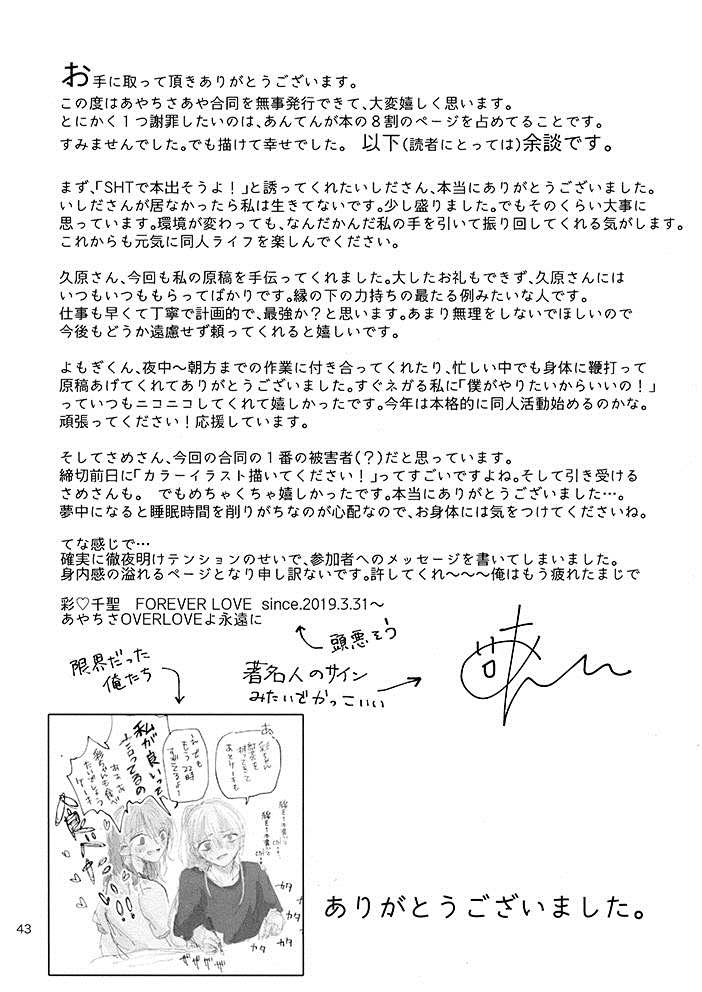 お手に取って頂きありがとうございます。
この度はあやちさあや合同を無事発行できて、大変嬉しく思います。
とにかく1つ謝罪したいのは、あんてんが本の8割のページを占めてることです。
すみませんでした。でも描けて幸せでした。 以下(読者にとっては)余談です。
まず、「SHTで本出そうよ!」と誘ってくれたいしださん、本当にありがとうございました。
いしださんが居なかったら私は生きてないです。少し盛りました。でもそのくらい大事に
思っています。環境が変わっても、なんだかんだ私の手を引いて振り回してくれる気がします。
これからも元気に同人ライフを楽しんでください。
久原さん、今回も私の原稿を手伝ってくれました。大したお礼もできず、久原さんには
いつもいつももらってばかりです。縁の下の力持ちの最たる例みたいな人です。
仕事も早くて丁寧で計画的で、最強か?と思います。あまり無理をしないでほしいので
今後もどうか遠慮せず頼ってくれると嬉しいです。
よもぎくん、夜中〜朝方までの作業に付き合ってくれたり、忙しい中でも身体に鞭打って
原稿あげてくれてありがとうございました。すぐネガる私に「僕がやりたいからいいの!」
っていつもニコニコしてくれて嬉しかったです。今年は本格的に同人活動始めるのかな。
頑張ってください!応援しています。
そしてさめさん、今回の合同の1番の被害者(?)だと思っています。
締切前日に「カラーイラスト描いてください!」ってすごいですよね。そして引き受ける
さめさんも。 でもめちゃくちゃ嬉しかったです。本当にありがとうございました…。
夢中になると睡眠時間を削りがちなのが心配なので、お身体には気をつけてくださいね。
てな感じで…
確実に徹夜明けテンションのせいで、参加者へのメッセージを書いてしまいました。
身内感の溢れるページとなり申し訳ないです。許してくれ〜〜〜俺はもう疲れたまじで
彩♡千聖 FOREVER LOVE since.2019.3.31〜
あやちさOVERLOVEよ永遠に
頭悪そう
限界だった
俺たち
著名人のサイン
みたいでかっこいい
私が良いって
言ってるの
え、でも
もう22時
すぎてるよ!
あ、彩ちゃん
カタ
カタ
カタ
ざざざざ
ありがとうございました。
43